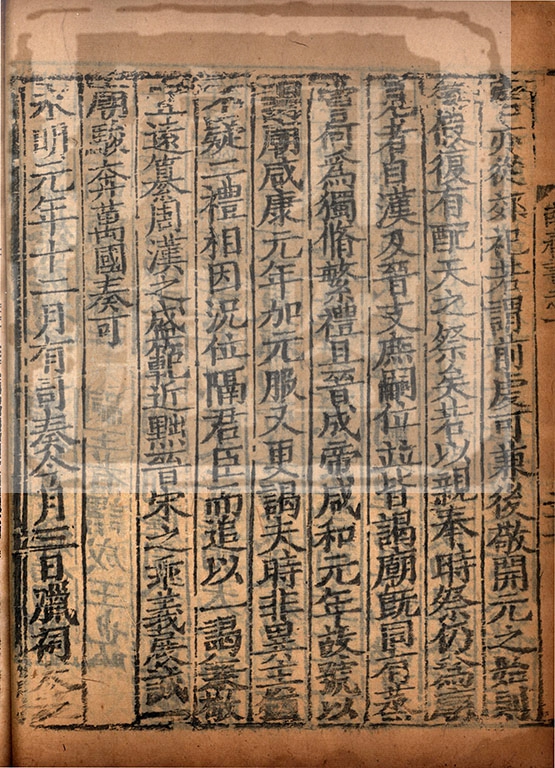 亦從郊祀若謂前虔可兼後敬開元之始則
無假復有配天之祭矣若以親奉時祭仍爲廟
見者自漢及晉支庶嗣位並皆謁廟旣同有蒸
嘗何爲獨脩繁禮且晉成帝咸和元年改號以
謁廟咸康元年加元服又更謁夫時非異主猶
不疑二禮相因況位隔君臣而追以一謁兼敬
宜遠纂周漢之盛範近黜晉宋之乖義展誠
廟駿奔萬國奏可
永明元年十二月有司奏今月三日臘祠